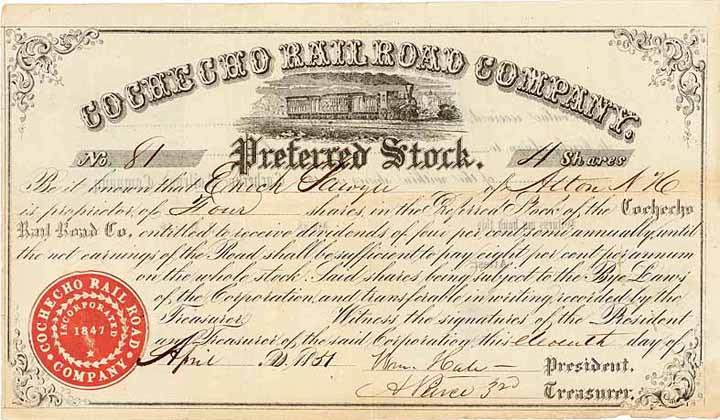 COCHECHO RAIL ROAD COMPANY.
No. 81 Preferred Stock. 4 Shares
Be it known that Enoch Sawyer of Alton N H
is proprietor of Four shares, in the Preferred Stock of the Cochecho
Rail Road Co. entitled to receive dividends of four per cent, semi annually, until
the net earnings of the Road shall be sufficient to pay eight per cent per annum
on the whole stock. Said shares being subject to the Bye Laws
of the Corporation, and transferable in writing, recorded by the
Treasurer Witness the signatures of the President
and Treasurer of the said Corporation, this eleventh day of
April A.D. 1851 Wm. Hale President.
A Pierce 3rd Treasurer.
COCHECHO RAIL ROAD COMPANY.
INCORPORATED
1847